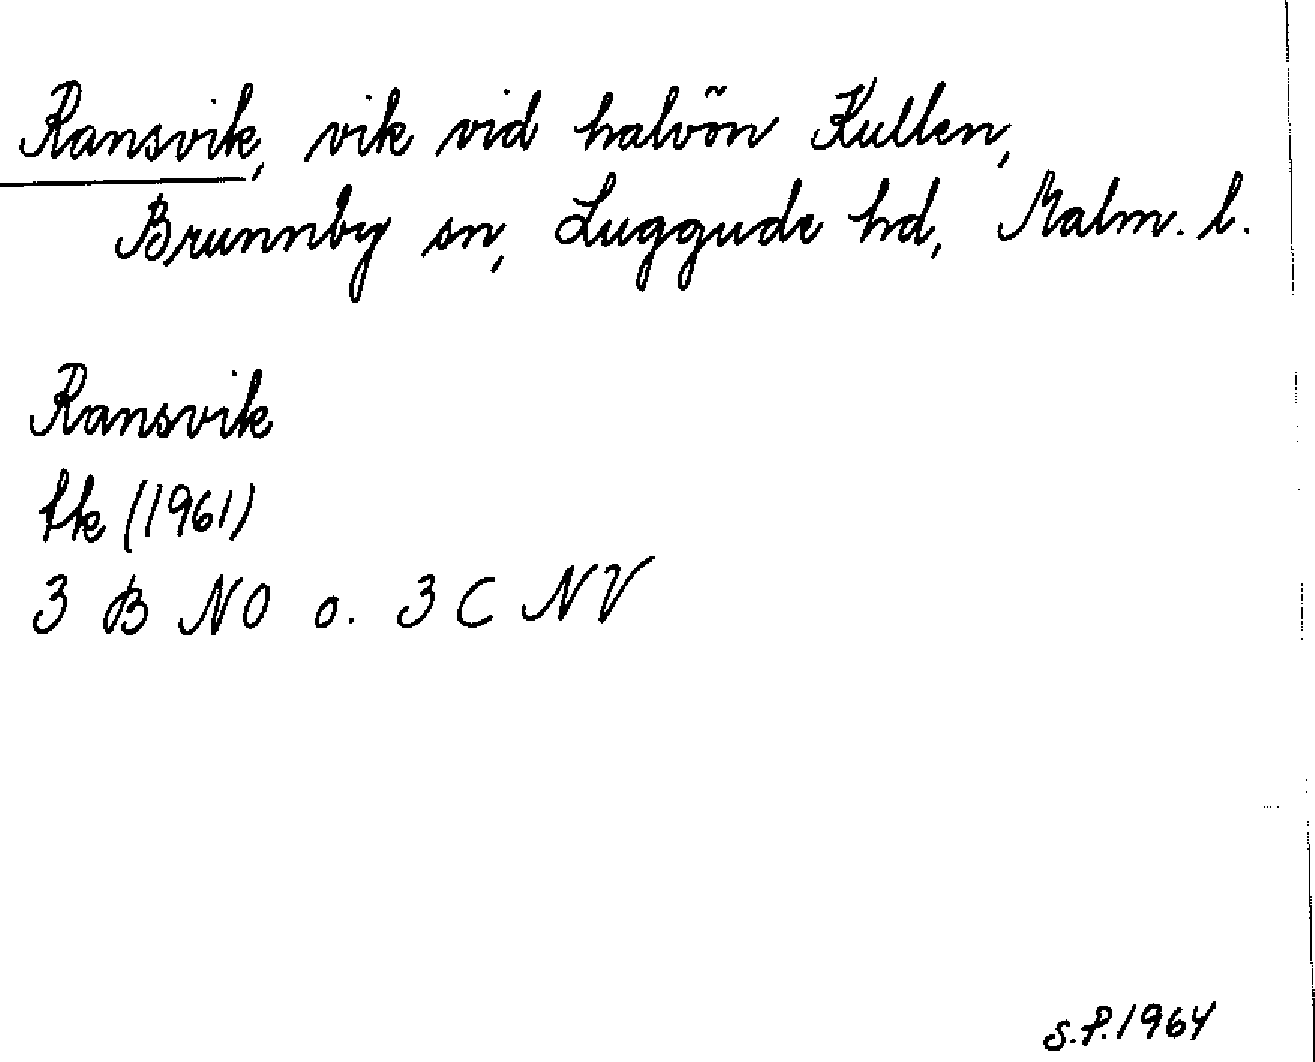 Ransvik, vik vid halvön Kullen,
Brunnby sn, Luggude hd, Malm. l.
Ransvik
tk (1961)
3 B NO o. 3 C NV
S.P. 1964